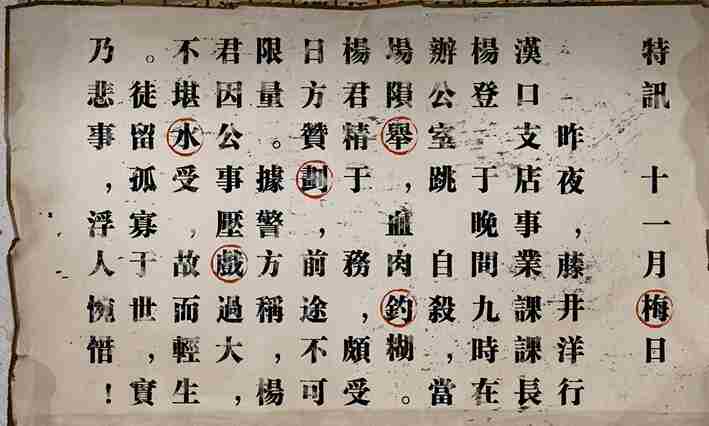 特訊 十一月梅日
昨夜，藤井洋行
漢口支店事業課課長
楊登 于晚間九時在
辦公室跳 自殺，當
場隕舉，血肉釣糊。
楊君精于 務，頗受
日方贊劃，前途不可
限量。據警方稱，楊
君因公事壓戲過大，
不堪水受 故而輕生
。徒留孤寡，于世，實
乃悲事，浮人惋惜！